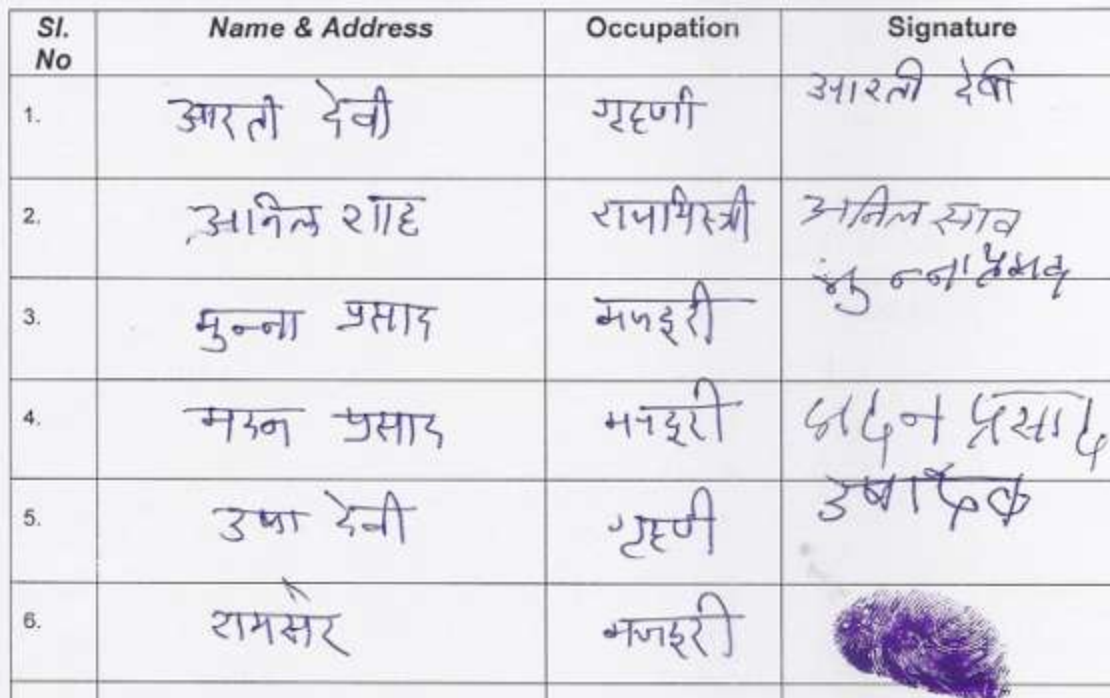 Sl. No Name & Address Occupation Signature
1. आरती देवी गृहणी आरती देवी
2. अनिल शाह राजमिस्त्री अनिल साव
3. मुन्ना प्रसाद मजदूरी मुन्ना प्रसाद
4. मदन प्रसाद मजदूरी मदन प्रसाद
5. उषा देवी गृहणी उषा देवी
6. रामसेर मजदूरी